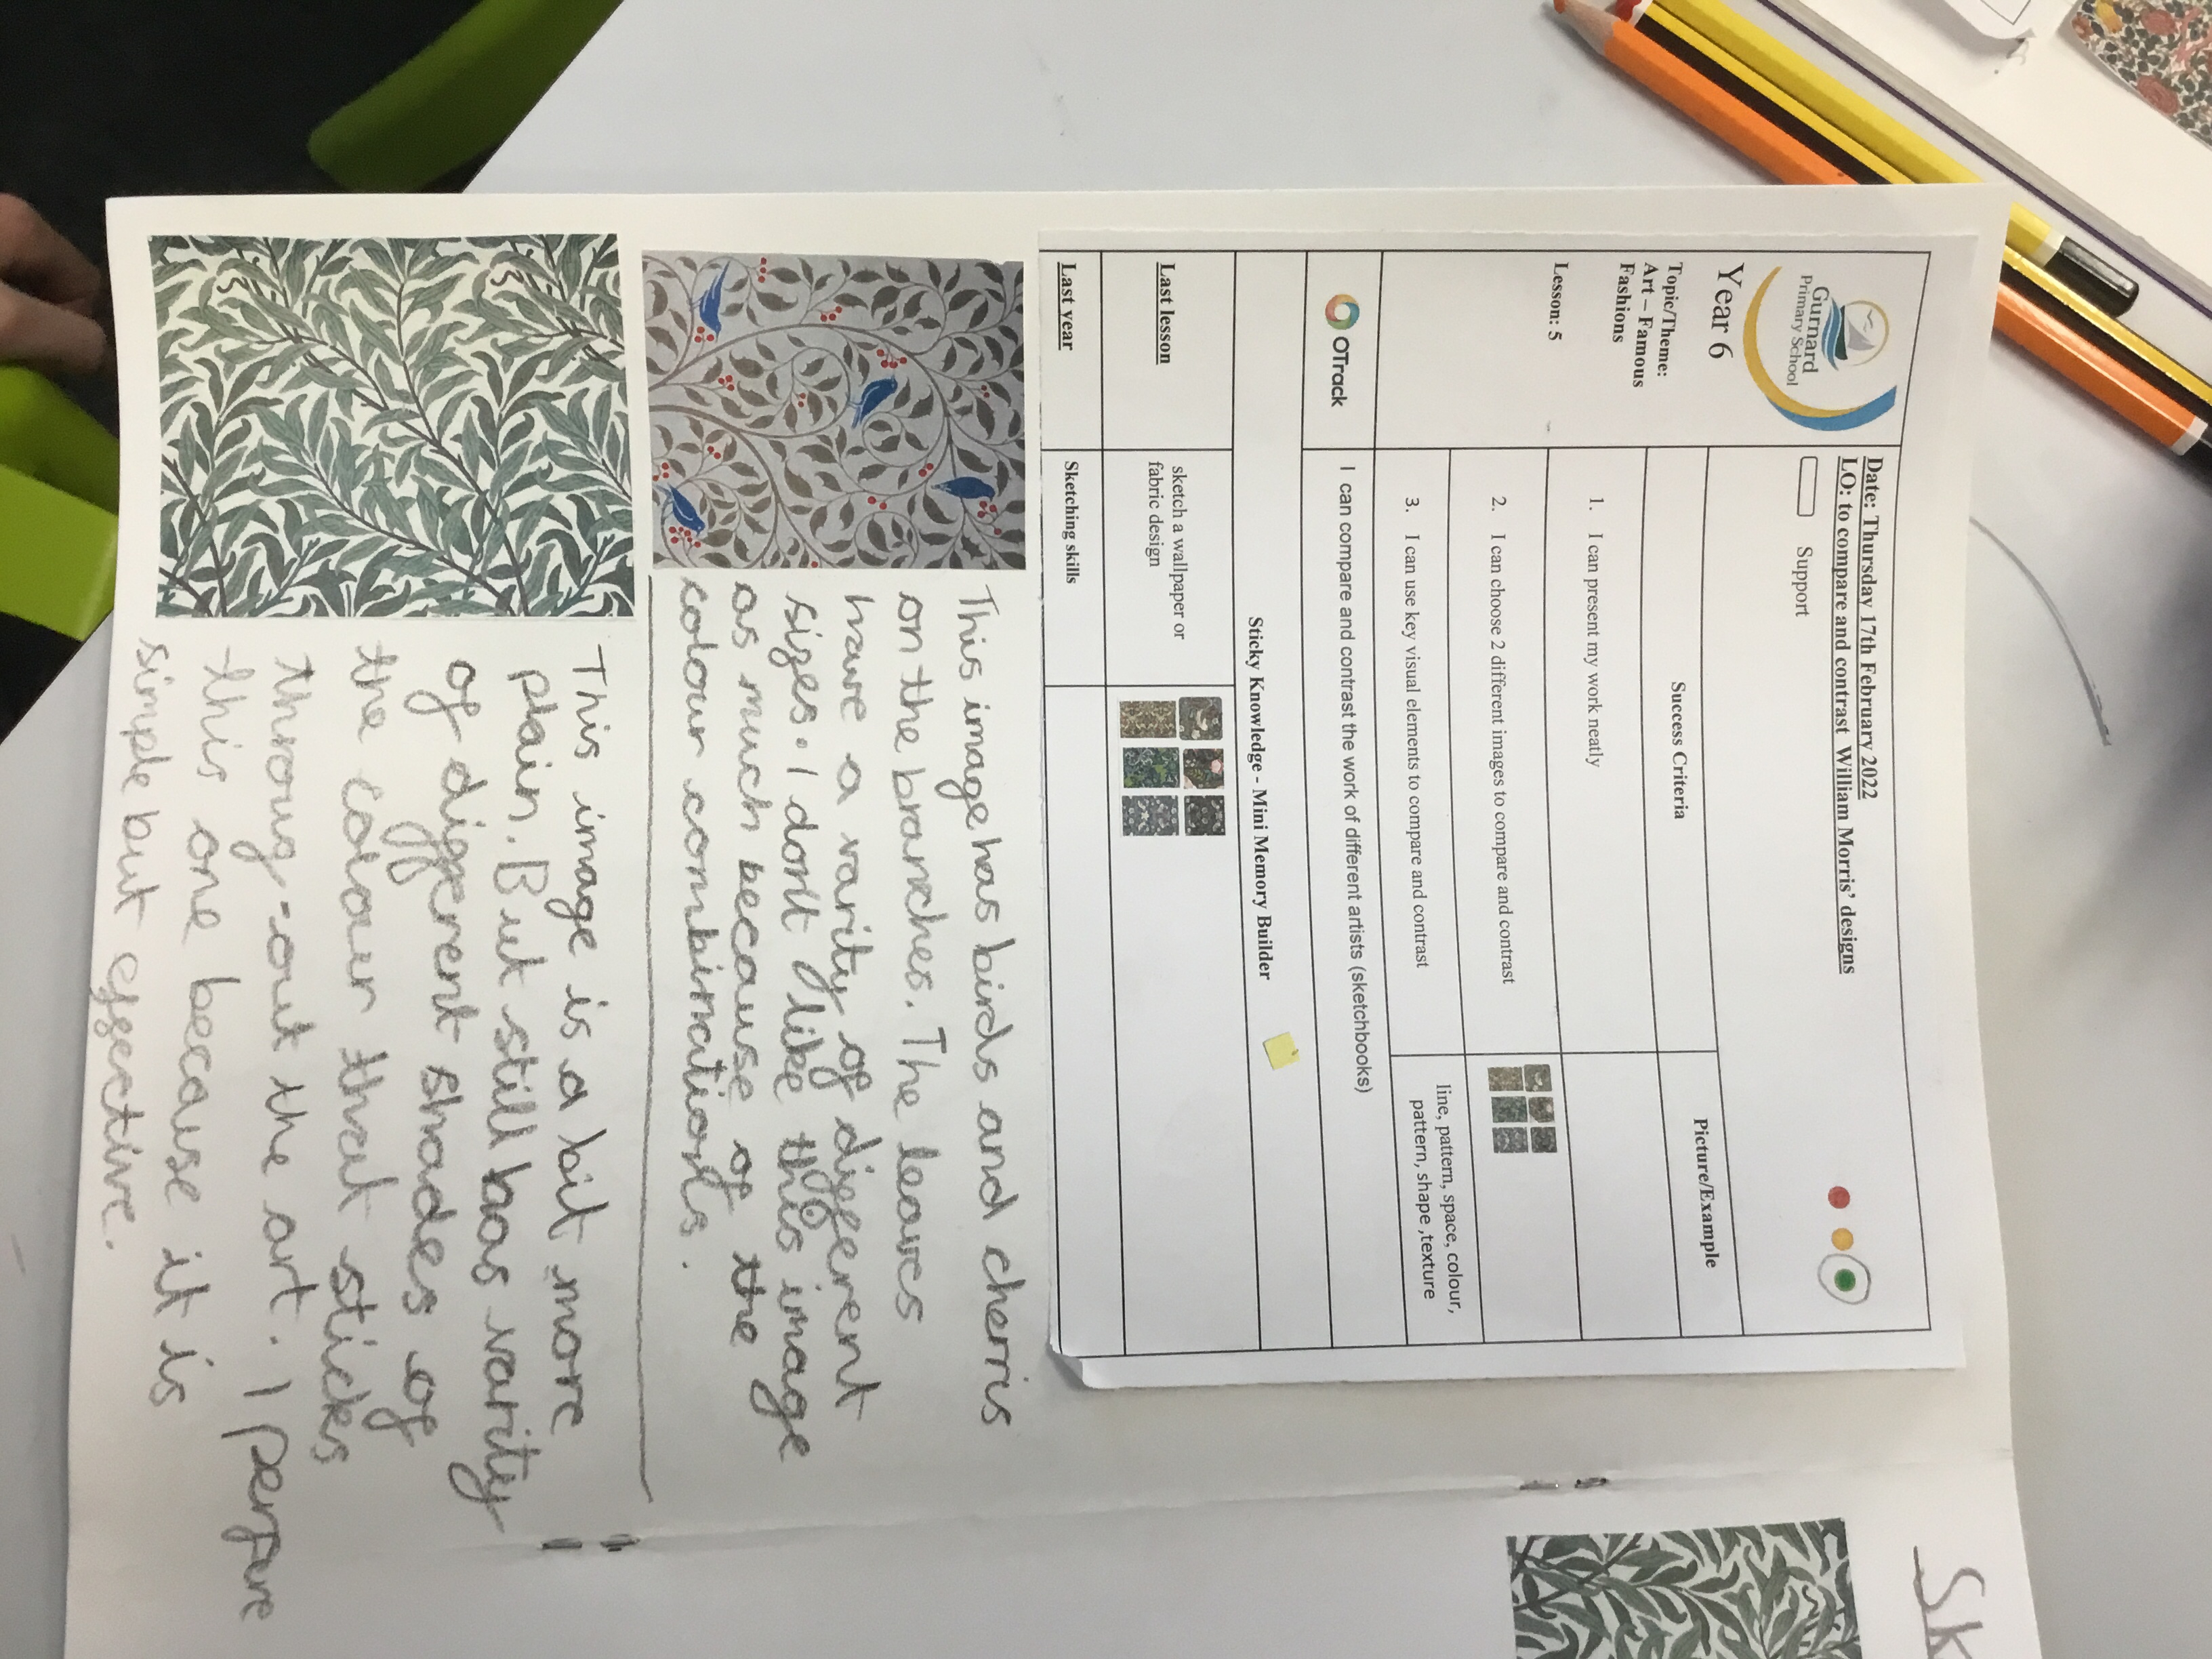 Gurnard
Primary School
Year 6
Topic/Theme:
Art – Famous
Fashions
Lesson: 5
Date: Thursday 17th February 2022
LO: to compare and contrast William Morris' designs
Support
Success Criteria
Picture/Example
1. I can present my work neatly
2. I can choose 2 different images to compare and contrast
3. I can use key visual elements to compare and contrast
line, pattern, space, colour,
pattern, shape ,texture
OTrack
I can compare and contrast the work of different artists (sketchbooks)
Sticky Knowledge - Mini Memory Builder
Last lesson
sketch a wallpaper or
fabric design
Last year
Sketching skills
This image has birds and cherris
on the branches. The leaves
have a varity of diggerent
sizes. I don't like this image
as much because of the
colour combinations.
This image is a bit more
plain. But still has varity
of diggerent shades of
the colour that sticks
throug-out the art. I perfure
this one because it is
simple but effective.
Sk